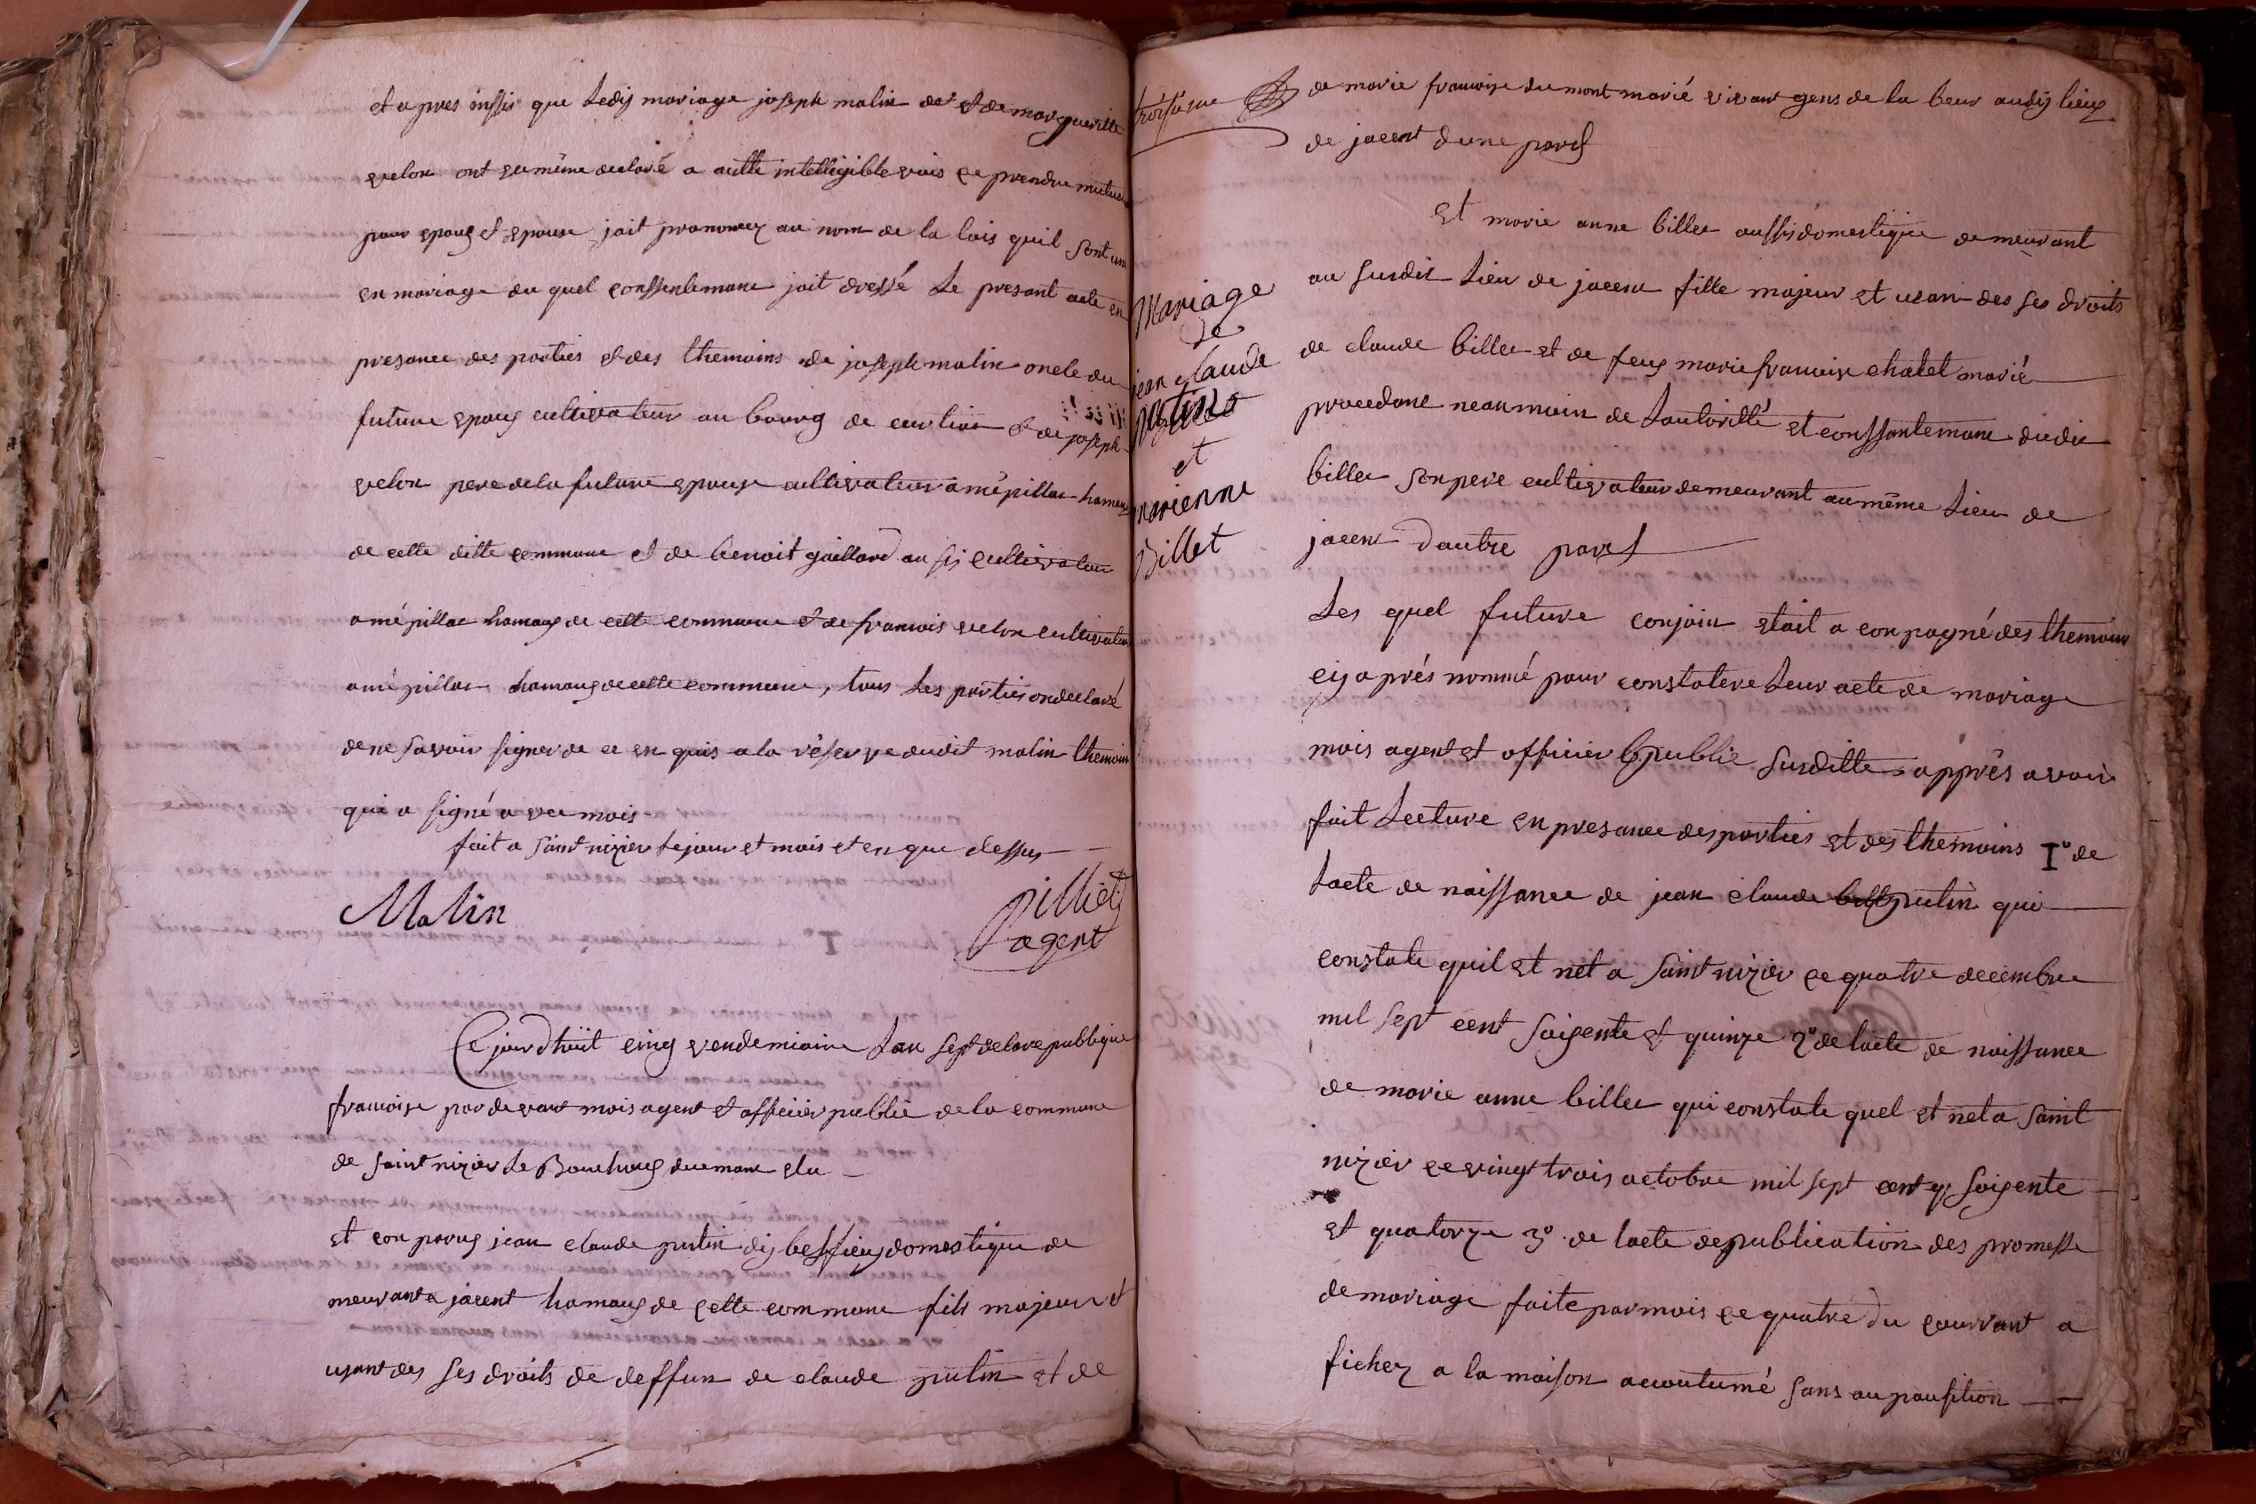 et apres inssis que Ledis mariage joseph malin det et de margueritte
velon ont eu même declaré a autte intelligible vois ce prendre mutuel
pour epoug et epouse jait prononcez au nom de la lois quil sont uni
en mariage du quel conssentemant jait dressé Le presant acte en
presance des parties et des themoins de joseph malin oncle du
future epoug cultivateur au bourg de et de joseph
velon pere de la future epouse cultivateur a mépillat hameug
de cette ditte commune et de benoit gaillard aussi cultivateur
a mépillat hamaug de cette commune et de francois velon cultivateur
a mépillat hamaug de cette commune, tous Les parties on declaré
de ne savoir signer de ce en quis a la réserve dudit malin themoin
qui a signé avec mois
fait a saint nizier Le jour et mois et en que dessus
Malin
pilliet
agent
Ce jourdhuit cinq vendemiaire Lan sept de la republique
francoise par devant mois agent et officier public de la commune
de saint nizier le Bouchoug duemant elu
et conparus jean claude putin dis domestique de
meurant a jacent hamaug de cette commune fils majeur et
usant des ses droits de deffun de claude putin et de
troisieme
de marie francoise dumont marié vivant gens de la beur audis lieug
de jacent dune part
Mariage
de
jean claude
putin
et
marienne
Billet
Et marie anne billet aussi domestique demeurant
au susdit Lieu de jacent fille majeur et usan des ses droits
de claude billet et de feug marie francoise chatel marié
procedant neanmoin de Lautorité et conssantemant dudit
billet son pere cultivateur demeurant au même Lieu de
jacent dautre part
Les quel future conjoin etait a conpagné des themoins
cy aprés nommé pour constatere Leur acte de mariage
mois agent et officier public susditte apprês avoir
fait Lecture en presance des parties et des themoins I° de
Lacte de naissance de jean claude putin qui
constate quil et net a saint nizier ce quatre decembre
mil sept cent soisente et quinze 2° de lacte de naissance
de marie anne billet qui constate quel et net a saint
nizier ce vingt trois octobre mil sept cent soisente
et quatorze 3° de lacte de publication des promesse
de mariage faite par mois ce quatre du courrant a
fichez a la maison accoutumé sans aupausition